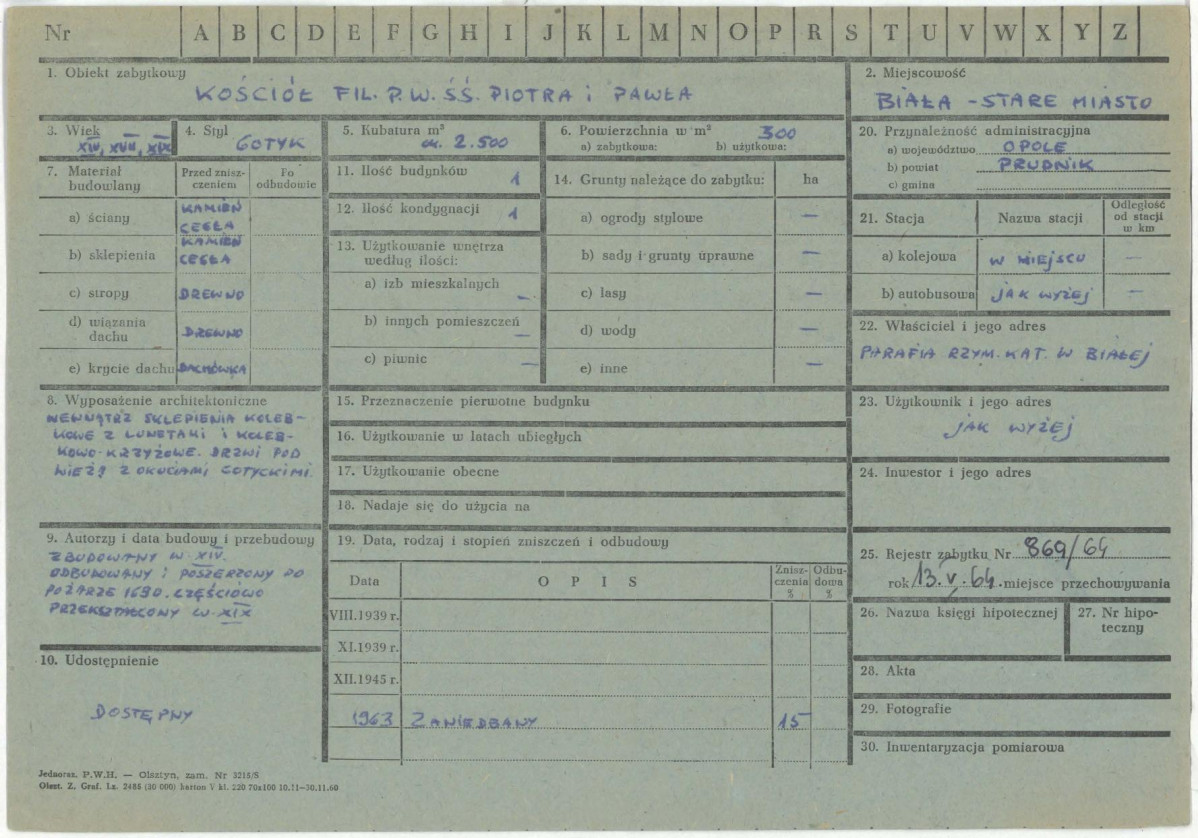 Nr A B C D E F G H I J K L M N O P R S T U V W X Y Z
1. Obiekt zabytkowy
KOŚCIÓŁ FIL. P.W. ŚŚ. PIOTRA i PAWŁA
2. Miejscowość
BIAŁA - STARE MIASTO
3. Wiek
XIV, XVII, XIX
4. Styl
GOTYK
5. Kubatura m³
ok. 2.500
6. Powierzchnia w m² 300
a) zabytkowa: b) użytkowa:
7. Materiał budowlany
Przed znisz-
czeniem
Po
odbudowie
a) ściany
KAMIEŃ
CEGŁA
b) sklepienia
KAMIEŃ
CEGŁA
c) stropy DREWNO
d) wiązania
dachu DREWNO
e) krycie dachu DACHÓWKA
8. Wyposażenie architektoniczne
WEWNĄTRZ SKLEPIENIA KOLEB-
KOWE Z LUNETAMI I KOLEB-
KOWO-KRZYŻOWE. DRZWI POD
WIEŻĄ Z OKUCIAMI GOTYCKIMI.
9. Autorzy i data budowy i przebudowy
ZBUDOWANY W XIV.
ODBUDOWANY i POSZERZONY PO
POŻARZE 1690. CZĘŚCIOWO
PRZEKSZTAŁCONY W XIX
10. Udostępnienie
DOSTĘPNY
11. Ilość budynków 1
12. Ilość kondygnacji 1
13. Użytkowanie wnętrza
według ilości:
a) izb mieszkalnych –
b) innych pomieszczeń –
c) piwnic –
14. Grunty należące do zabytku: ha
a) ogrody stylowe –
b) sady i grunty uprawne –
c) lasy –
d) wody –
e) inne –
15. Przeznaczenie pierwotne budynku
16. Użytkowanie w latach ubiegłych
17. Użytkowanie obecne
18. Nadaje się do użycia na
19. Data, rodzaj i stopień zniszczeń i odbudowy
Data O P I S
Znisz-
czenia
%
Odbu-
dowa
%
VIII.1939 r.
XI.1939 r.
XII.1945 r.
1963 ZANIEDBANY 15
20. Przynależność administracyjna
a) województwo OPOLE
b) powiat PRUDNIK
c) gmina
21. Stacja Nazwa stacji
Odległość
od stacji
w km
a) kolejowa W MIEJSCU –
b) autobusowa JAK WYŻEJ –
22. Właściciel i jego adres
PARAFIA RZYM. KAT. W BIAŁEJ
23. Użytkownik i jego adres
JAK WYŻEJ
24. Inwestor i jego adres
25. Rejestr zabytku Nr 869/64
rok 13.V.64. miejsce przechowywania
26. Nazwa księgi hipotecznej
27. Nr hipo-
teczny
28. Akta
29. Fotografie
30. Inwentaryzacja pomiarowa
Jednoraz. P.W.H. — Olsztyn, zam. Nr 3216/S
Olszt. Z. Graf. Lz. 2485 (30 000) karton V kl. 220 70x100 10.11—30.11.60